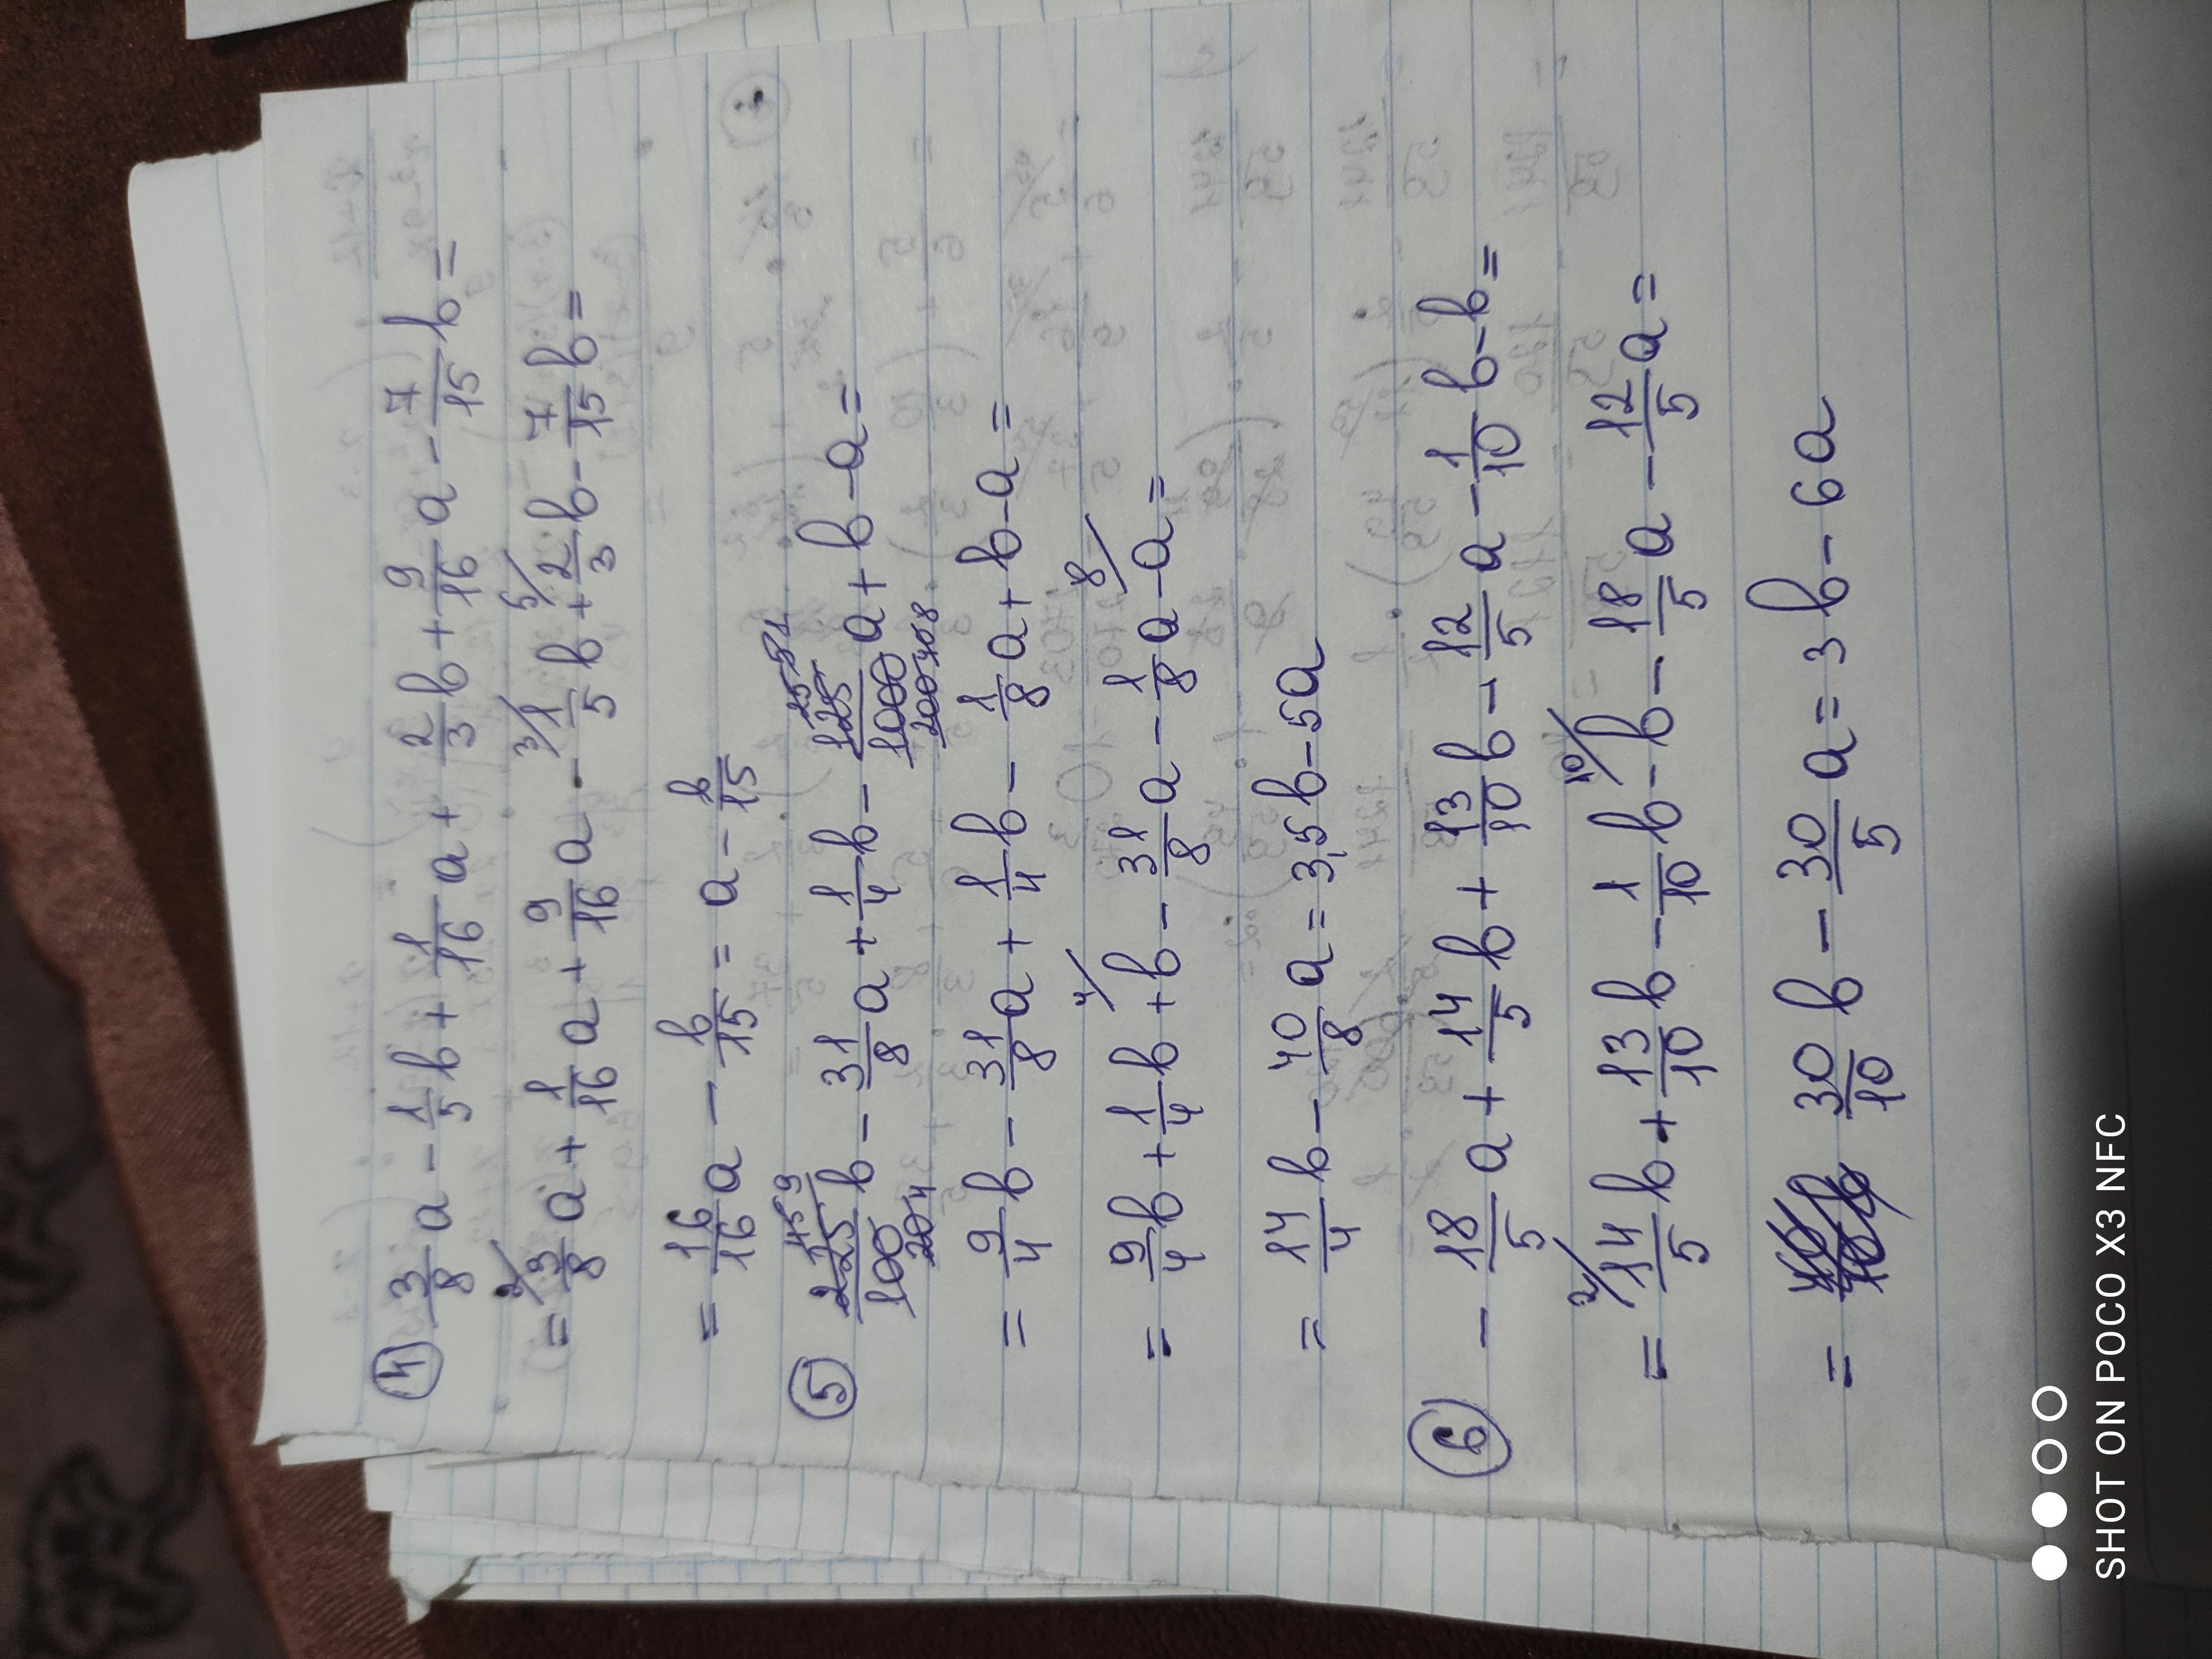 ④ 3/8 a - 1/5 b + 1/16 a + 2/3 b + 9/16 a - 7/15 b =
= 2/ 3/8 a + 1/16 a + 9/16 a - 3/ 1/5 b + 5/ 2/3 b - 7/15 b =
= 16/16 a - b/15 = a - b/15
⑤ 225/100 b - 31/8 a + 1/4 b - 125/1000 a + b - a =
45 9 20 4 25 5 1 200 40 8
= 9/4 b - 31/8 a + 1/4 b - 1/8 a + b - a =
= 9/4 b + 1/4 b + 4/ b - 31/8 a - 1/8 a - 8/ a =
= 14/4 b - 40/8 a = 3,5 b - 5a
⑥ - 18/5 a + 14/5 b + 13/10 b - 12/5 a - 1/10 b - b =
= 2/ 14/5 b + 13/10 b - 1/10 b - 10/ b - 18/5 a - 12/5 a =
= 30/10 b - 30/5 a = 3b - 6a
SHOT ON POCO X3 NFC